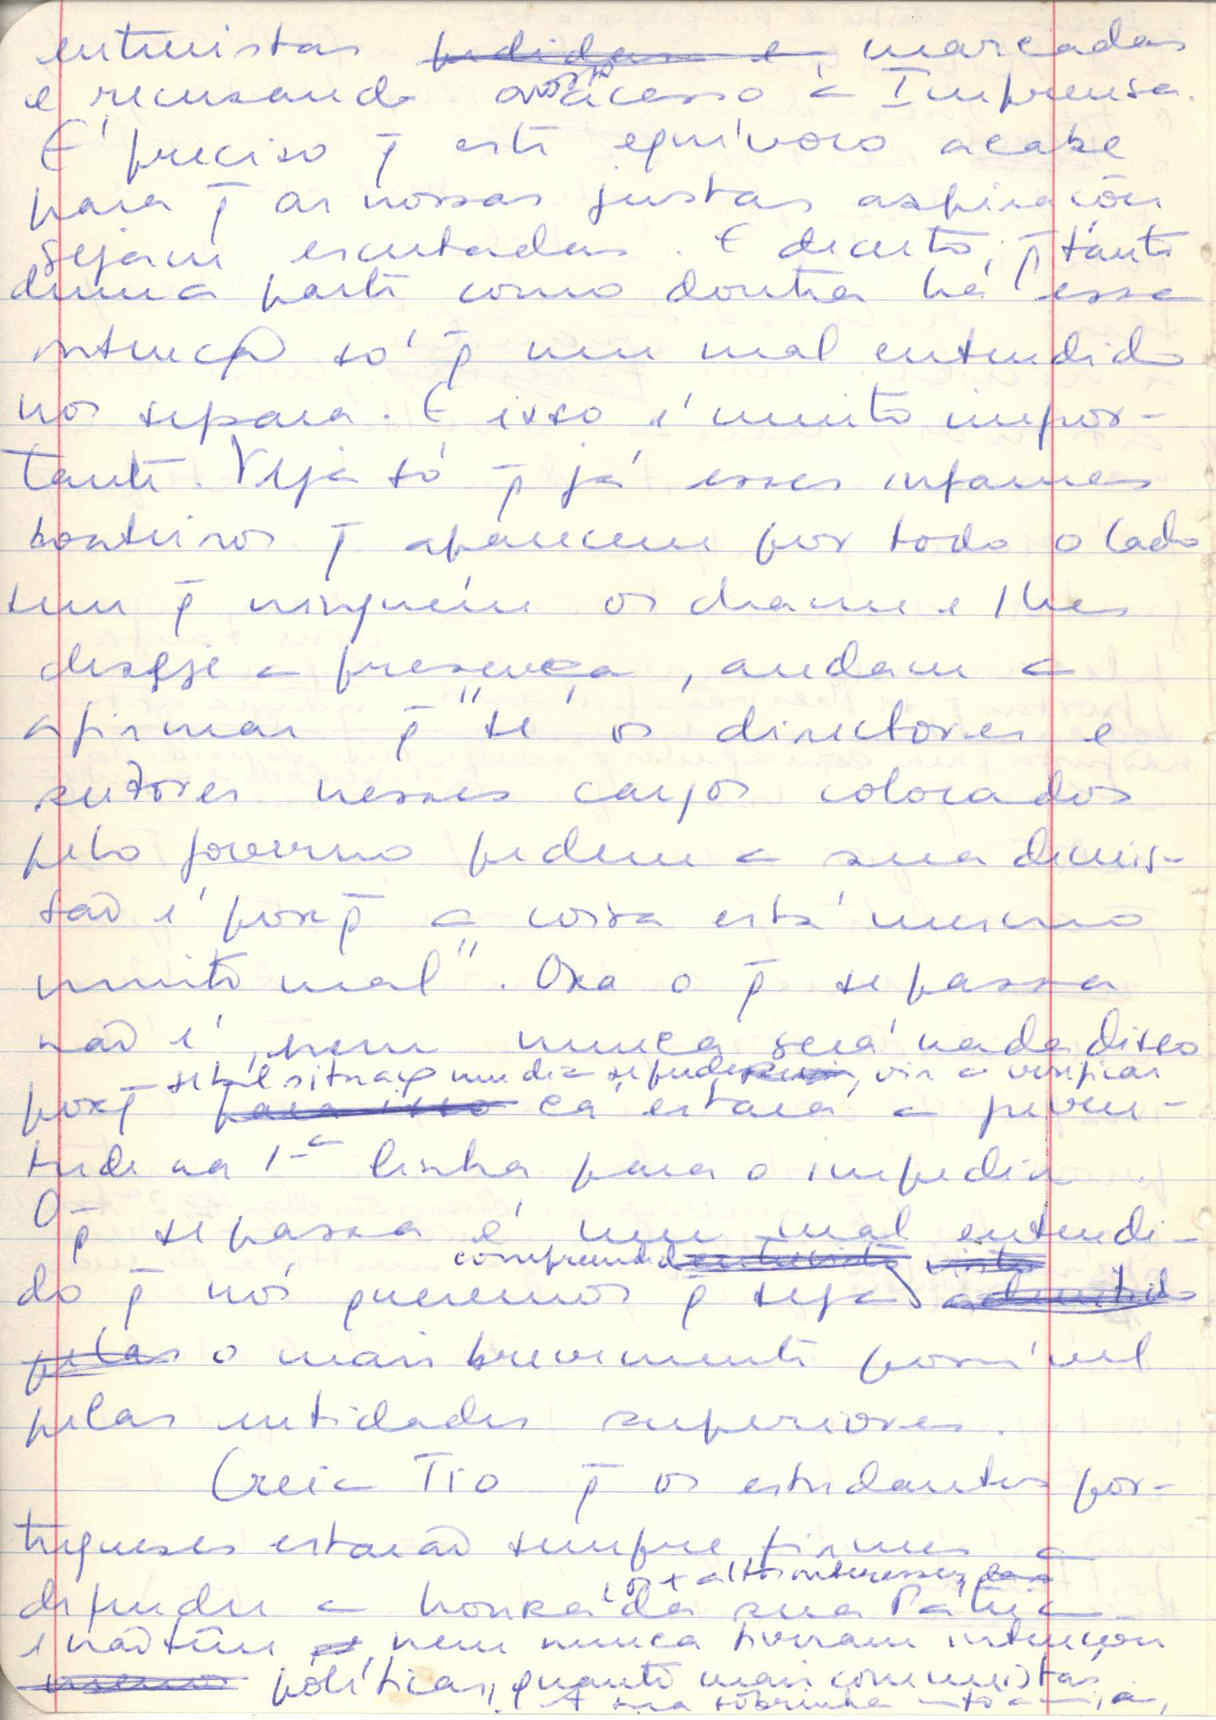 entrevistas pedidas e marcadas
e recusando o nosso acesso à Imprensa.
É preciso q̄ este equívoco acabe
para q̄ as nossas justas aspirações
sejam escutadas. E decerto, q̄ tanto
duma parte como doutra há essa
intenção só q̄ um mal entendido
nos separa. E isso é muito impor-
tante. Veja só q̄ já esses infames
boateiros q̄ aparecem por todo o lado
sem q̄ ninguém os chame e lhes
deseje a presença, andam a
afirmar q̄ "se os directores e
reitores nesses cargos colocados
pelo governo pedem a sua demis-
são é porq̄ a coisa está mesmo
muito mal". Ora o q̄ se passa
não é, nem nunca será nada disso
se tal situação um dia se pudesse, vir a verificar
porq̄ para isso cá estará a juven-
tude na 1ª linha para o impedir.
O q̄ se passa é um mal entendi-
compreendido
do q̄ nós queremos q̄ seja
pelas o mais brevemente possível
pelas entidades superiores.
Creia Tio q̄ os estudantes por-
tugueses estarão sempre firmes a
e os + altos interesses
defender a honra da sua Pátria
e não têm nem nunca tiveram intenções
políticas, quanto mais comunistas.
A sua sobrinha mto amiga,